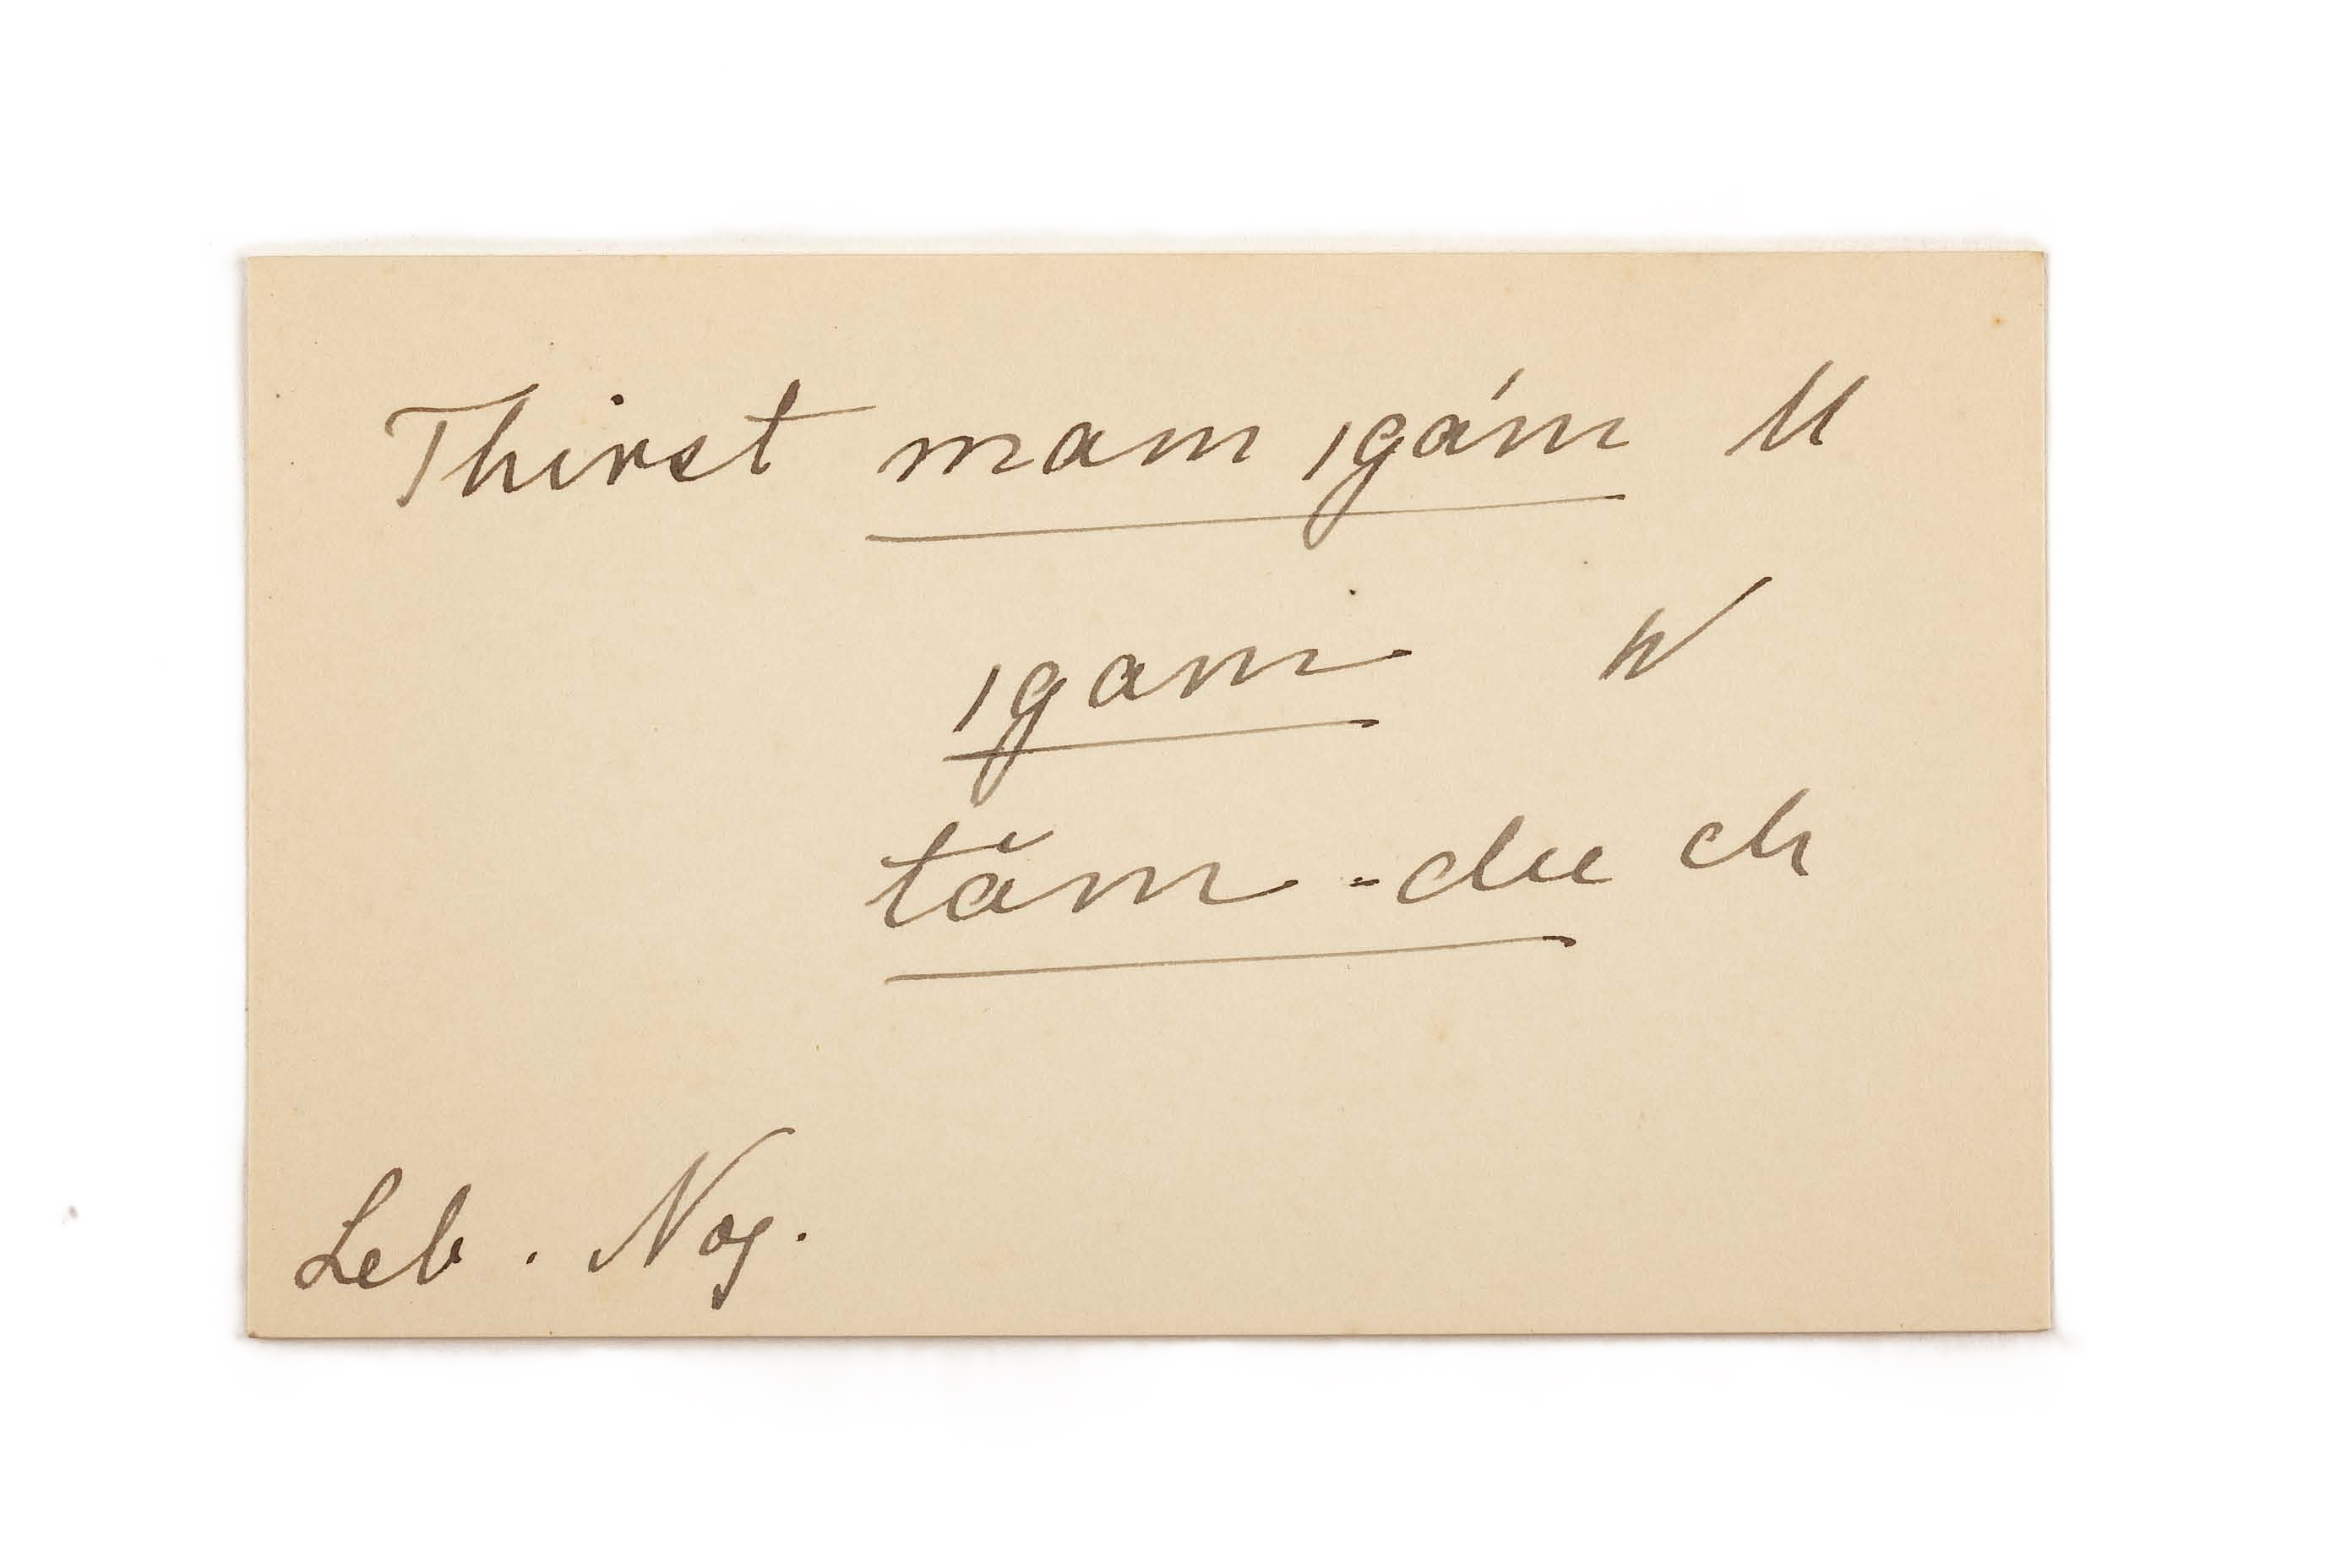 Thirst mam igám M
igam W
tăm-du ch
Leb. Nog.